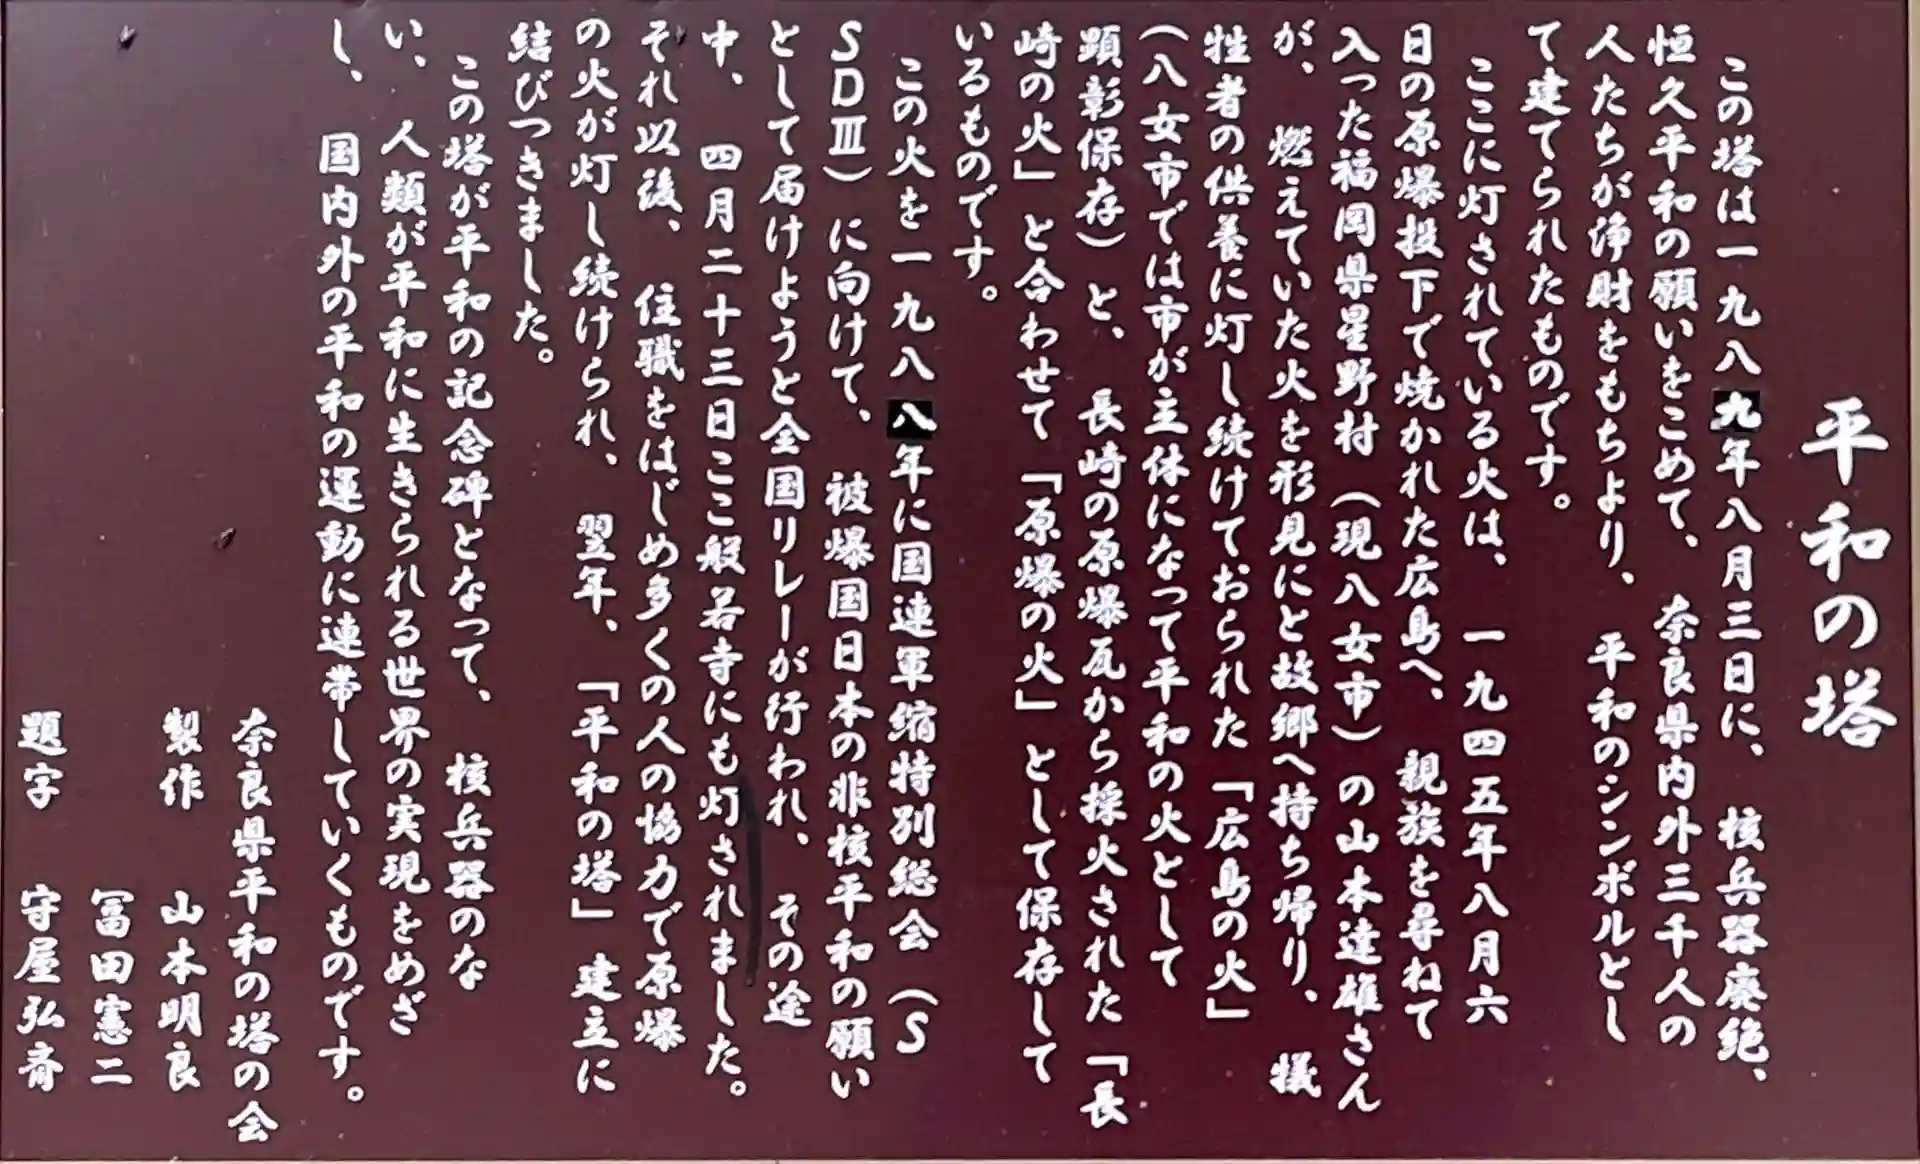 平和の塔
この塔は一九八九年八月三日に、核兵器廃絶、
恒久平和の願いをこめて、奈良県内外三千人の
人たちが浄財をもちより、平和のシンボルとし
て建てられたものです。
ここに灯されている火は、一九四五年八月六
日の原爆投下で焼かれた広島へ、親族を尋ねて
入った福岡県星野村（現八女市）の山本達雄さん
が、燃えていた火を形見にと故郷へ持ち帰り、犠
牲者の供養に灯し続けておられた「広島の火」
（八女市では市が主体になって平和の火として
顕彰保存）と、長崎の原爆瓦から採火された「長
崎の火」と合わせて「原爆の火」として保存して
いるものです。
この火を一九八八年に国連軍縮特別総会（S
SDⅢ）に向けて、被爆国日本の非核平和の願い
として届けようと全国リレーが行われ、その途
中、四月二十三日ここ般若寺にも灯されました。
それ以後、住職をはじめ多くの人の協力で原爆
の火が灯し続けられ、翌年、「平和の塔」建立に
結びつきました。
この塔が平和の記念碑となって、核兵器のな
い、人類が平和に生きられる世界の実現をめざ
し、国内外の平和の運動に連帯していくものです。
奈良県平和の塔の会
製作 山本明良
冨田憲二
題字 守屋弘斎